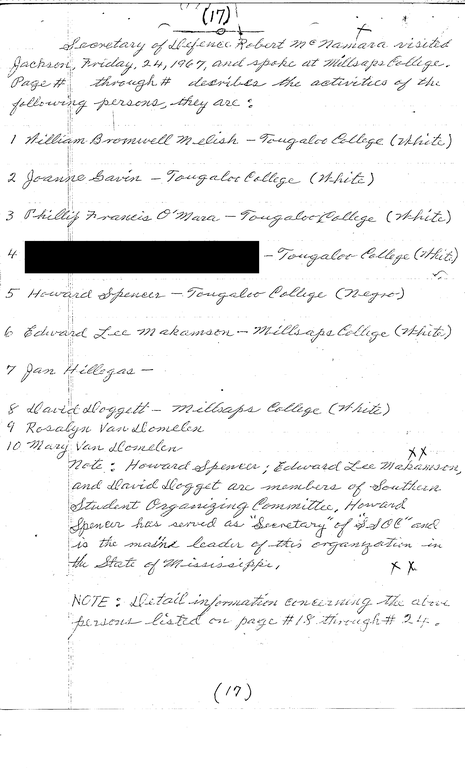 (17)
Secretary of Defence Robert McNamara visited
Jackson, Friday, 24, 1967, and spoke at Millsaps College.
Page # through # describes the activities of the
following persons, they are :
1 William Bromwell Melish - Tougaloo College (White)
2 Joanne Gavin - Tougaloo College (White)
3 Phillip Francis O'Mara - Tougaloo College (White)
4 - Tougaloo College (White)
5 Howard Spencer - Tougaloo College (Negro)
6 Edward Lee Makamson - Millsaps College (White)
7 Jan Hillegas -
8 David Doggett - Millsaps College (White)
9 Rosalyn Van Domelen
10 Mary Van Domelen
XX
Note : Howard Spencer ; Edward Lee Makamson,
and David Dogget are members of Southern
Student Organizing Committee, Howard
Spencer has served as "Secretary" of "SSOC" and
is the main leader of this organization in
the State of Mississippi.
XX
NOTE : Detail information concerning the above
persons listed on page #18 through # 24.
(17)